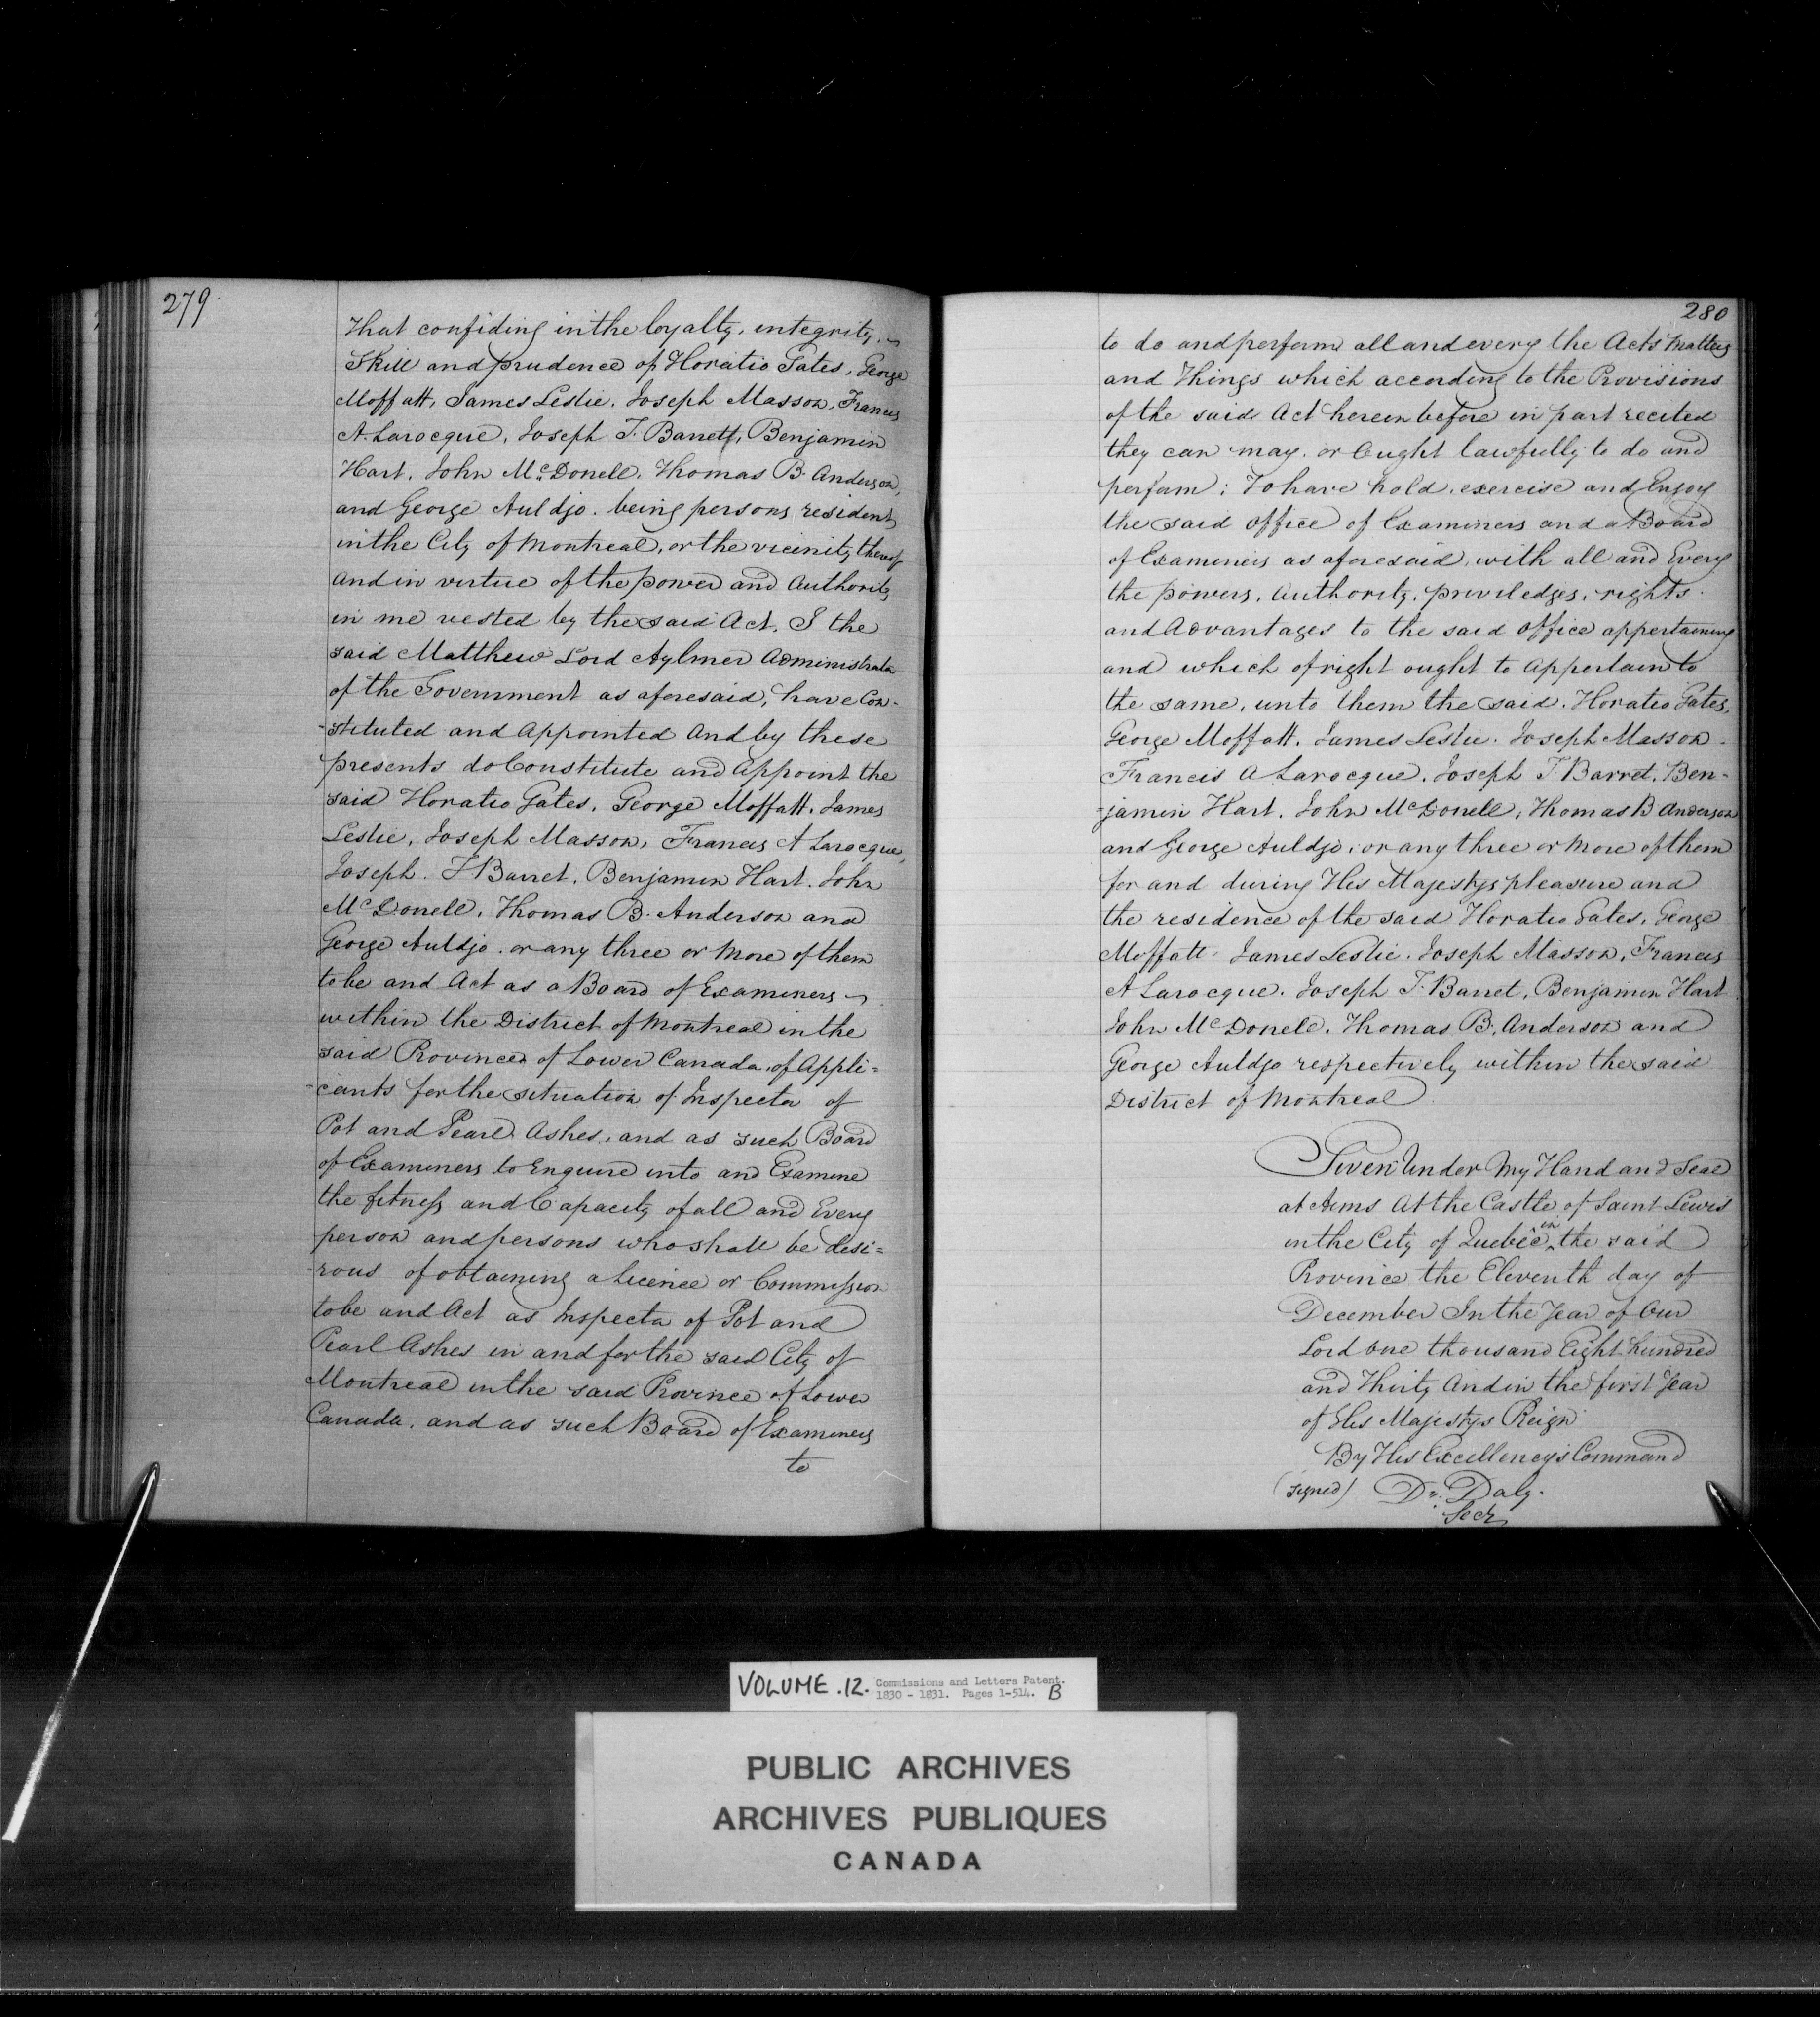 279
That confiding in the loyalty, integrity,
Skill and prudence of Horatio Gates, George
Moffatt, James Leslie, Joseph Masson, Francis
A. Larocque, Joseph T. Barrett, Benjamin
Hart, John McDonell, Thomas B. Anderson,
and George Auldjo. being persons resident
in the City of Montreal, or the vicinity thereof
and in virtue of the power and Authority
in me vested by the said Act, I the
said Matthew Lord Aylmer Administrator
of the Government as aforesaid, have Con-
-stituted and Appointed And by these
presents do Constitute and Appoint the
said Horatio Gates, George Moffatt, James
Leslie, Joseph Masson, Francis A Larocque,
Joseph. T Barret, Benjamin Hart, John
McDonell, Thomas B. Anderson and
George Auldjo. or any three or More of them
to be and Act as a Board of Examiners
within the District of Montreal in the
said Province of Lower Canada, of Appli=
-cants for the situation of Inspector of
Pot and Pearl Ashes, and as such Board
of Examiners to Enquire into and Examine
the fitness and Capacity of all and Every
person and persons who shall be desi=
-rous of obtaining a Licence or Commission
to be and Act as Inspector of Pot and
Pearl Ashes in and for the said City of
Montreal in the said Province of Lower
Canada, and as such Board of Examiners
to
280
to do and perform all and every the Acts Matters
and Things which according to the Provisions
of the said Act herein before in part recited
they can may. or Ought lawfully to do and
perform; To have hold, exercise and Enjoy
the said office of Examiners and a Board
of Examiners as aforesaid, with all and Every
the powers, Authority, priviledges, rights.
and Advantages to the said office appertaining
and which of right ought to Appertain to
the same, unto them the said. Horatio Gates,
George Moffatt, James Leslie. Joseph Masson.
Francis A Larocque, Joseph T. Barret, Ben-
=jamin Hart. John McDonell, Thomas B Anderson
and George Auldjo, or any three or More of them
for and during His Majestys pleasure and
the residence of the said Horatio Gates, George
Moffatt, James Leslie. Joseph Masson, Francis
A Larocque. Joseph T. Barret, Benjamin Hart
John McDonell, Thomas B. Anderson and
George Auldjo respectively within the said
District of Montreal.
Given Under My Hand and Seal
at Arms At the Castle of Saint Lewis
in the City of Quebec in the said
Province the Eleventh day of
December In the Year of Our
Lord One thousand Eight hundred
and Thirty And in the first Year
of His Majestys Reign
By His Excellency's Command
(signed) Dc. Daly.
Secy
VOLUME. 12. Commissions and Letters Patent.
1830 - 1831. Pages 1-514. B
PUBLIC ARCHIVES
ARCHIVES PUBLIQUES
CANADA